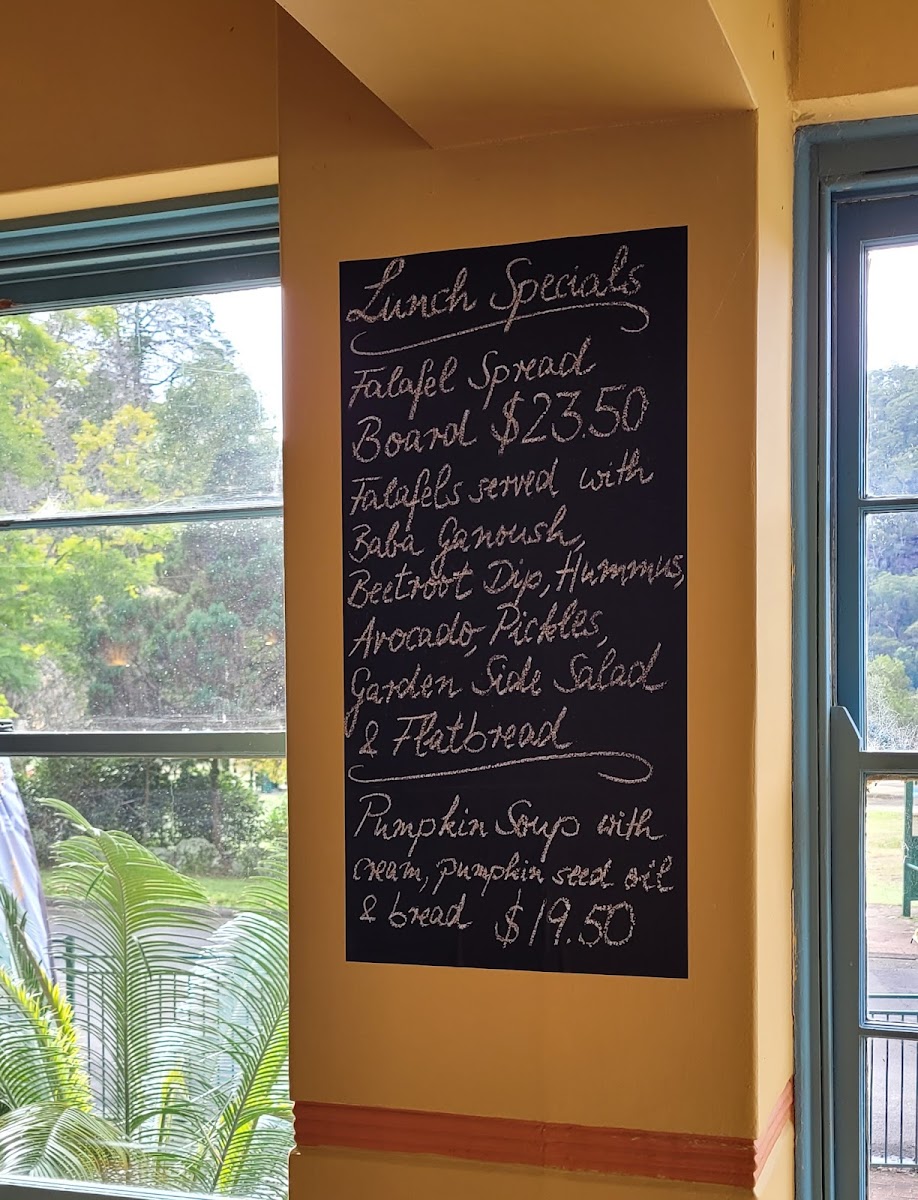 Lunch Specials
Falafel Spread
Board $23.50
Falafels served with
Baba Ganoush,
Beetroot Dip, Hummus,
Avocado, Pickles,
Garden Side Salad
& Flatbread
Pumpkin Soup with
cream, pumpkin seed oil
& bread $19.50